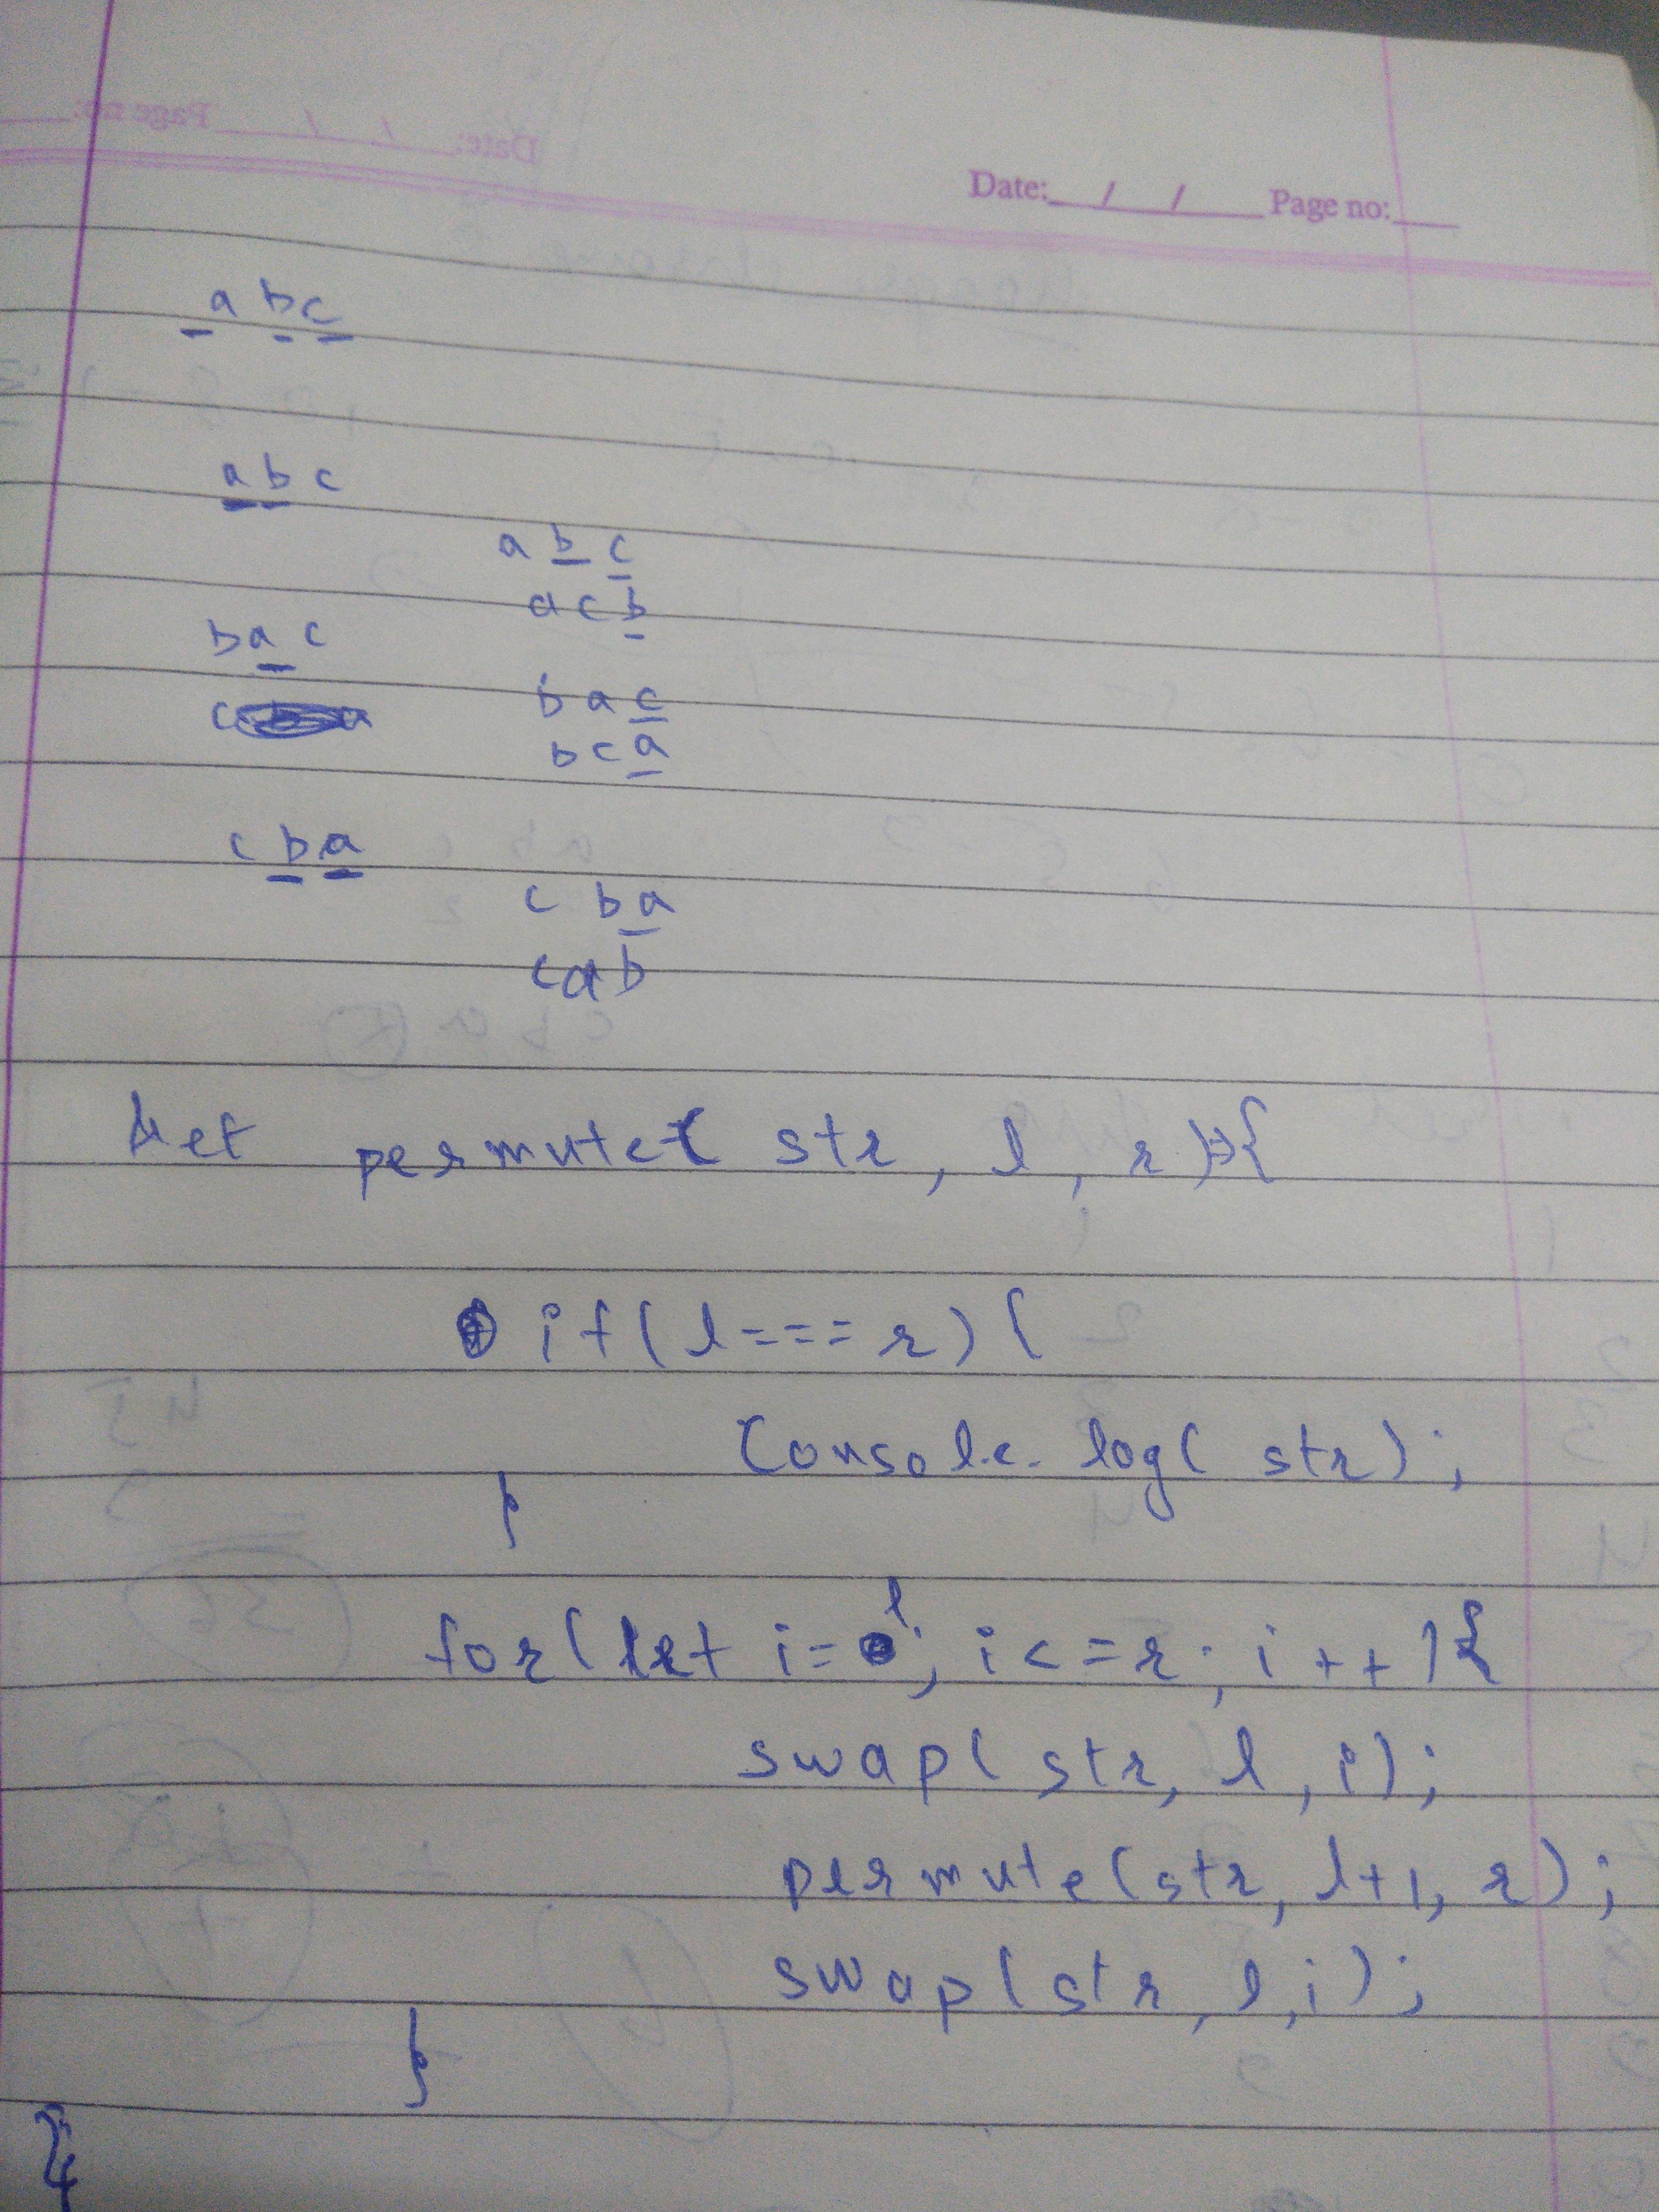 Date: / / Page no:
a b c
a b c
a b c
a c b
b a c
c
b a c
b c a
c b a
c b a
c a b
let permute( str, l, r){
if(l===r){
Console.log( str);
}
for(let i=l; i<=r; i++){
swap( str, l, i);
permute(str, l+1, r);
swap(str, l, i);
}
}